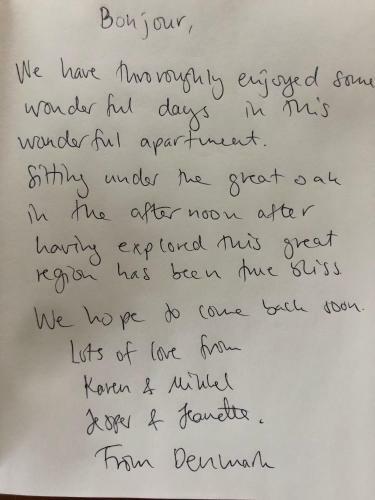 Bonjour,
We have throroughly enjoyed some
wonderful days in this
wonderful apartment.
Sitting under the great oak
in the afternoon after
having explored this great
region has been true bliss
We hope to come back soon.
Lots of love from
Karen & Mikkel
Jesper & Jeanette.
From Denmark